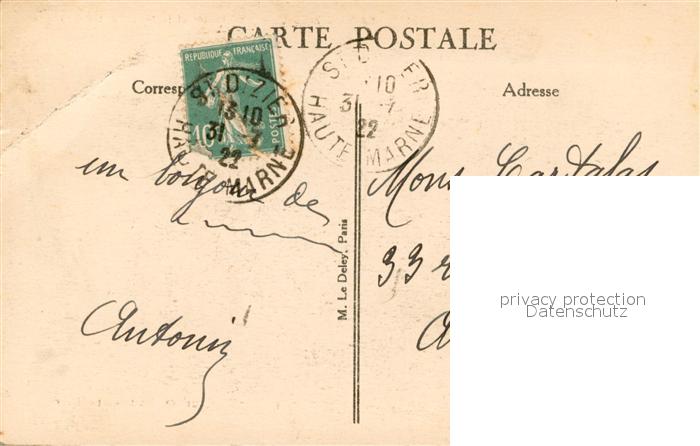 CARTE POSTALE
Corresp
Adresse
REPUBLIQUE FRANÇAISE
POSTES
10
ST DIZIER
13 10
31 -7
22
HAUTE MARNE
ST DIZIER
10
3 -7
22
HAUTE MARNE
un bonjour de
Antonin
M. Le Deley, Paris
Mons
33 r
privacy protection
Datenschutz